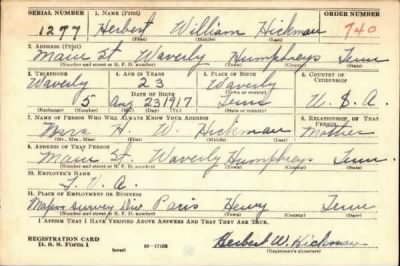 SERIAL NUMBER 1. NAME (Print) ORDER NUMBER
1277 Herbert William Hickman 740
(First) (Middle) (Last)
2. ADDRESS (Print)
Main St. Waverly Humphreys Tenn
(Number and street or R. F. D. number) (Town) (County) (State)
3. TELEPHONE 4. AGE IN YEARS 5. PLACE OF BIRTH 6. COUNTRY OF CITIZENSHIP
Waverly 23 Waverly
DATE OF BIRTH (Town or county)
5 Aug 23 1917 Tenn U. S. A.
(Exchange) (Number) (Mo.) (Day) (Yr.) (State or country)
7. NAME OF PERSON WHO WILL ALWAYS KNOW YOUR ADDRESS 8. RELATIONSHIP OF THAT PERSON
Mrs H. W. Hickman Mother
(Mr., Mrs., Miss) (First) (Middle) (Last)
9. ADDRESS OF THAT PERSON
Main St. Waverly Humphreys Tenn.
(Number and street or R. F. D. number) (Town) (County) (State)
10. EMPLOYER'S NAME
T. V. A.
11. PLACE OF EMPLOYMENT OR BUSINESS
Maps Survey Div Paris Henry Tenn
(Number and street or R. F. D. number) (Town) (County) (State)
I AFFIRM THAT I HAVE VERIFIED ABOVE ANSWERS AND THAT THEY ARE TRUE.
REGISTRATION CARD
D. S. S. Form 1 (over) 16-17105 Herbert W. Hickman
(Registrant's signature)